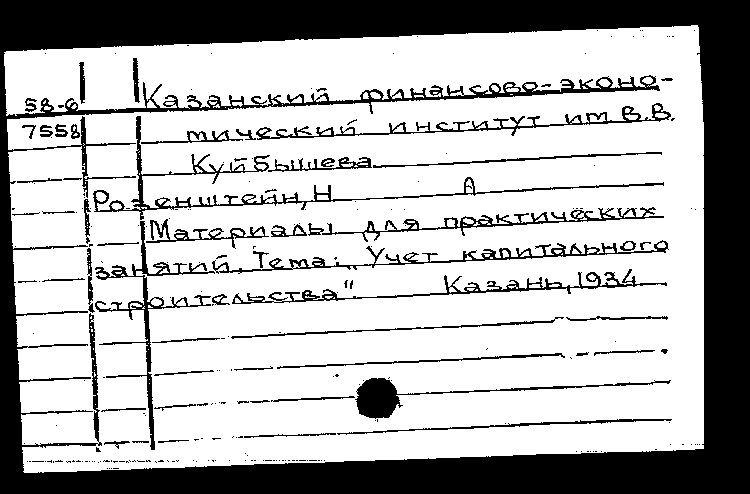 58-6 Казанский финансово-эконо-
7558 мический институт им В.В.
Куйбышева
Розенштейн, Н А
Материалы для практических
занятий. Тема: „Учет капитального
строительства". Казань, 1934